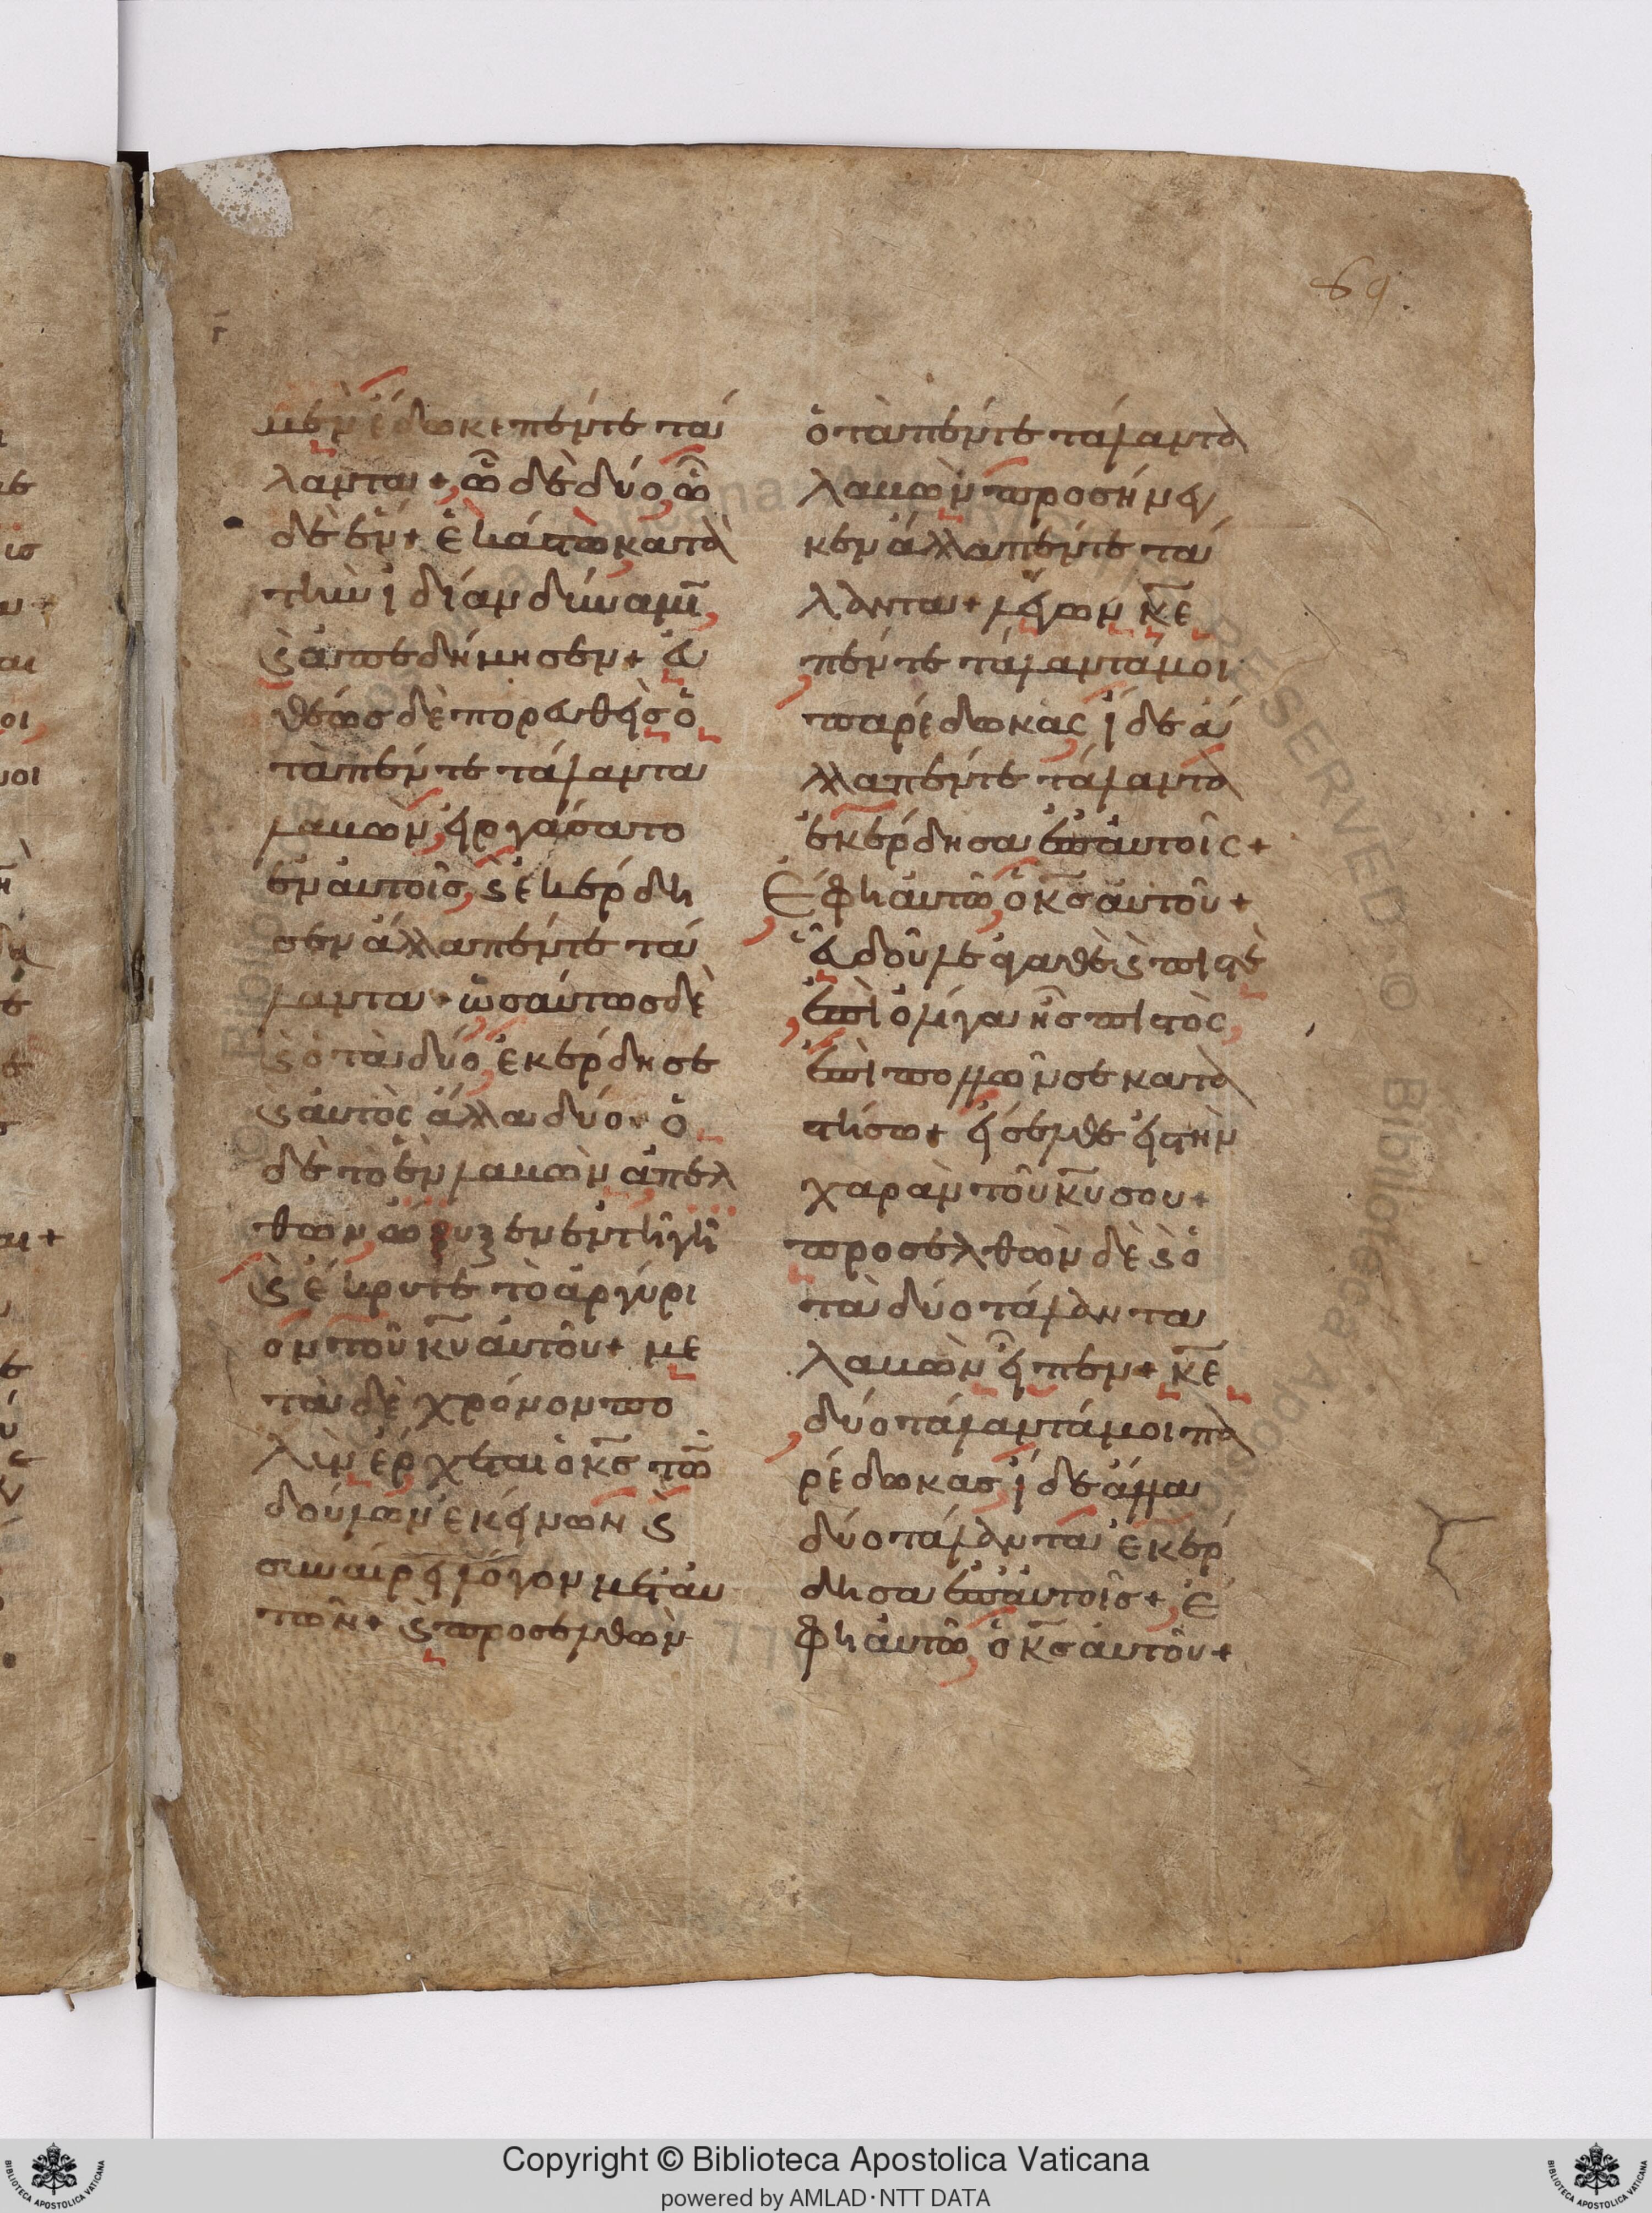 69.
μὲν ἔδωκε πέντε τά
λαντα + ὧ δὲ δύο, ὧ
δὲ ἕν + ἑκάστω κατὰ
τὴν ἰδίαν δύναμῖ,
ϛ ἀπεδήμησεν + εὐ
θέως δὲ πορευθεὶς ὁ
τὰ πέντε τάλαντα
λαβὼν, εἰργάσατο
ἐν αὐτοῖς, ϛ ἐκέρδη
σεν ἄλλα πέντε τά
λαντα + ὡσαύτως δὲ
ϛ ὁ τὰ δύο, ἐκέρδησε
ϛ αὐτὸς ἄλλα δύο + ὁ
δὲ τὸ ἓν λαβὼν ἀπελ
θὼν ὤρυξεν ἐν τῆ γῆ
ϛ ἔκρυψε τὸ ἀργύρι
ον τοῦ κ̅υ̅ αὐτοῦ + με
τὰ δὲ χρόνον πο
λὺν ἔρχεται ὁ κ̅ς̅ τῶ
δούλων ἐκείνων ϛ
συναίρει λόγον μετ' αὐ
τῶν + ϛ προσελθὼν
ὁ τὰ πέντε τάλαντα
λαβὼν προσήνεγ
κεν ἄλλα πέντε τά
λαντα + λέγων κ̅ε̅
πέντε τάλαντά μοι
παρέδωκας ἴδε ἄ
λλα πέντε τάλαντα
ἐκέρδησα ἐπ' αὐτοῖς +
Ἔφη αὐτῶ, ὁ κ̅ς̅ αὐτοῦ +
εὖ δοῦλε ἀγαθὲ ϛ πιστὲ
ἐπὶ ὀλίγα ἦς πιστὸς,
ἐπὶ πολλῶν σε κατα
στήσω + εἴσελθε εἰς τὴν
χαρὰν τοῦ κ̅υ̅ σου +
προσελθὼν δὲ ϛ ὁ
τὰ δύο τάλαντα
λαβὼν εἶπεν + κ̅ε̅
δύο τάλαντά μοι πα
ρέδωκας ἴδε ἄλλα
δύο τάλαντα ἐκέρ
δησα ἐπ' αὐτοῖς + Ἔ
φη αὐτῶ, ὁ κ̅ς̅ αὐτοῦ +
Copyright © Biblioteca Apostolica Vaticana
powered by AMLAD·NTT DATA